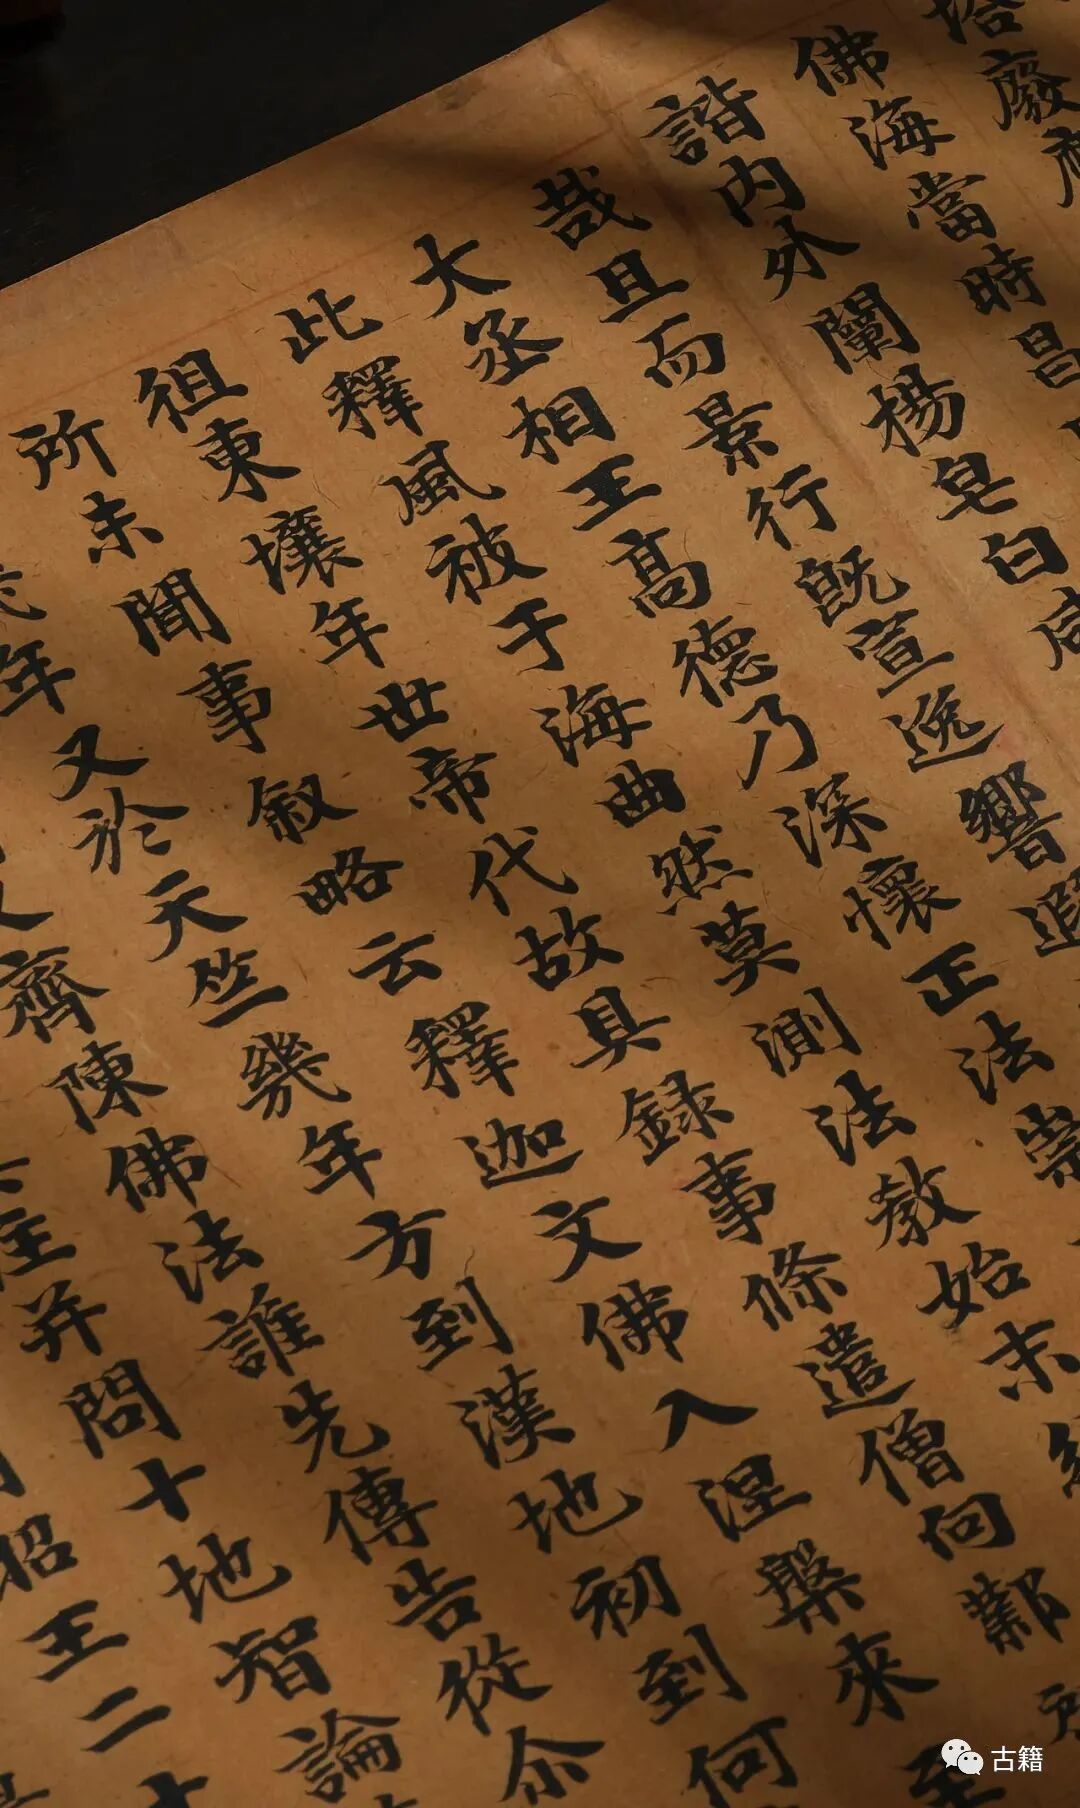 塔廢
佛海當時昌
諧內外闡楊皂白咸
哉且而景行既宣逸響遐
大丞相王高德乃深懷正法崇
此釋風被于海曲然莫測法教始末
徂東壤年世帝代故具録事條遣僧向鄴
所未聞事叙略云釋迦文佛入涅槃來至
年又於天竺幾年方到漢地初到何
齊陳佛法誰先傳告從尒
主并問十地智論
昭王二十
古籍